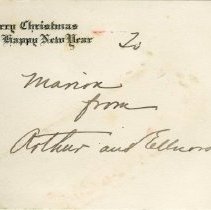 rry Christmas
Happy New Year
To
Marion
from
Arthur and Ellnora